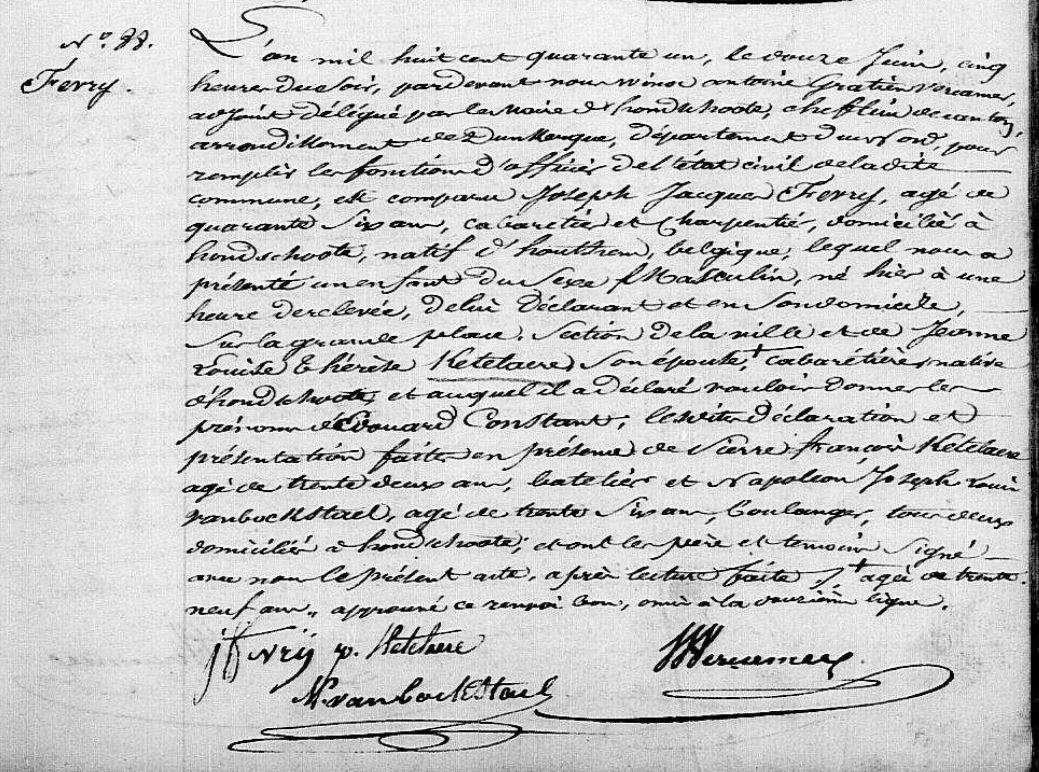 N.º 88.
Fevry.
L'an mil huit cent quarante un, le douze Juin, cinq
heures du Soir, pardevant nous winoc antoine Gratien Vercamer,
adjoint délégué par le Maire d'hondschoote, chef lieu de canton,
arrondissement de Dunkerque, département du Nord, pour
remplir les fonctions d'officier de l'état civil de la dite
commune, est comparu Joseph Jacques Fevry, agé de
quarante Six ans, cabaretier et Charpentier, domicilié à
hondschoote, natif d'houthem, belgique, lequel nous a
présenté un enfant du Sexe Masculin, né hier à une
heure de relevée, de lui Déclarant et en Son domicile,
Sur la grande place, Section de la ville et de Jeanne
Louise thérèse Ketelaere Son épouse, + cabarétière, native
d'hondschoote, et auquel il a déclaré vouloir donner les
prénoms d'Edouard Constant, lesdites déclaration et
présentation faites en présence de Pierre françois Ketelaere
agé de trente deux ans, batelier et Napoléon Joseph Louis
vanbockstael, agé de trente Six ans, boulanger, tous deux
domiciliés à hondschoote, et ont les père et temoins Signé
avec nous le présent acte, après lecture faite ./. + agée de trente
neuf ans, approuvé ce renvoi bon, omis à la douzième ligne.
j j fevrij p. Ketelaere
Vercamer
N. vanbockstael